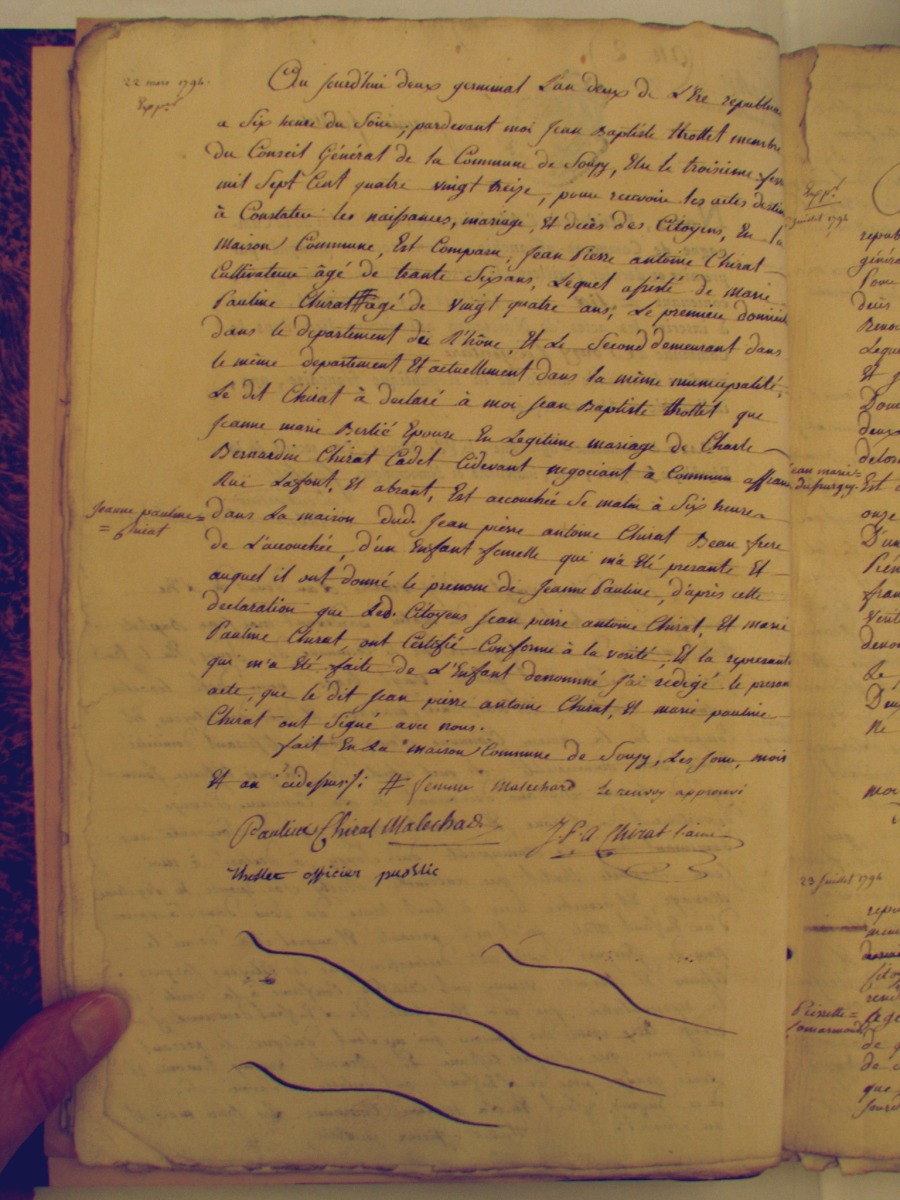 22 mars 1794
Exp.né
Au jourd'hui deux germinal L'an deux de L'Ere republicai
a Six heure du Soir, pardevant moi Jean Baptiste throttet membre
du Conseil Général de la Commune de Soupy, Elu le troisième
mil Sept Cent quatre vingt treize, pour recevoir les actes destin
à Constater les naissances, mariage, Et décès des Citoyens, En la
Maison Commune, Est Comparu, Jean Pierre antoine Chirat
Cultivateur âgé de trante Six ans, Lequel assisté de Marie
Pauline Chirat # agé de Vingt quatre ans, Le premier domicil
dans le departement du Rhône, Et Le Second demeurant dans
le même departement Et actuellement dans la même municipalité,
Le dit Chirat à declaré à moi Jean Baptiste throttet que
Jeanne marie Bertié Epouse En Legitime mariage de Charle
Bernardin Chirat Cadet Cidevant negociant à Commun affran
Rue Lafont, Et absant, Est accouchée Se matin à Six heure
Jeanne pauline =
= Chirat
dans La maison dud. Jean pierre antoine Chirat Beau frere
de L'accouchée, d'un Enfant femelle qui m'a Eté presante Et
auquel il ont donné le prenom de Jeanne Pauline, d'après cette
declaration que Led. Citoyens Jean pierre antoine Chirat, Et marie
Pauline Chirat, ont Certifié Conforme à la verité, Et la represant
qui m'a Eté faite de L'Enfant denommé J'ai redigé le presen
acte, que le dit Jean pierre antoine Chirat, Et marie pauline
Chirat ont Signé avec nous.
fait En La maison Commune de Soupy, Les Jour, mois
Et an cidessus /: # femme Malechard Le renvoy approuvé
Pauline Chirat Malechard
J. P. A. Chirat l'ainé
throttet officier public
Exp.né
Juillet 1794
repub
général
Pour
décès
Lequel
Et J
Dom
deux
Jean marie =
dufourgey.
Est
onze
D'un
Pier
fran
Verité
deno
Le
Ne
moi
23 Juillet 1794
repu
mem
Pierrette =
de
que